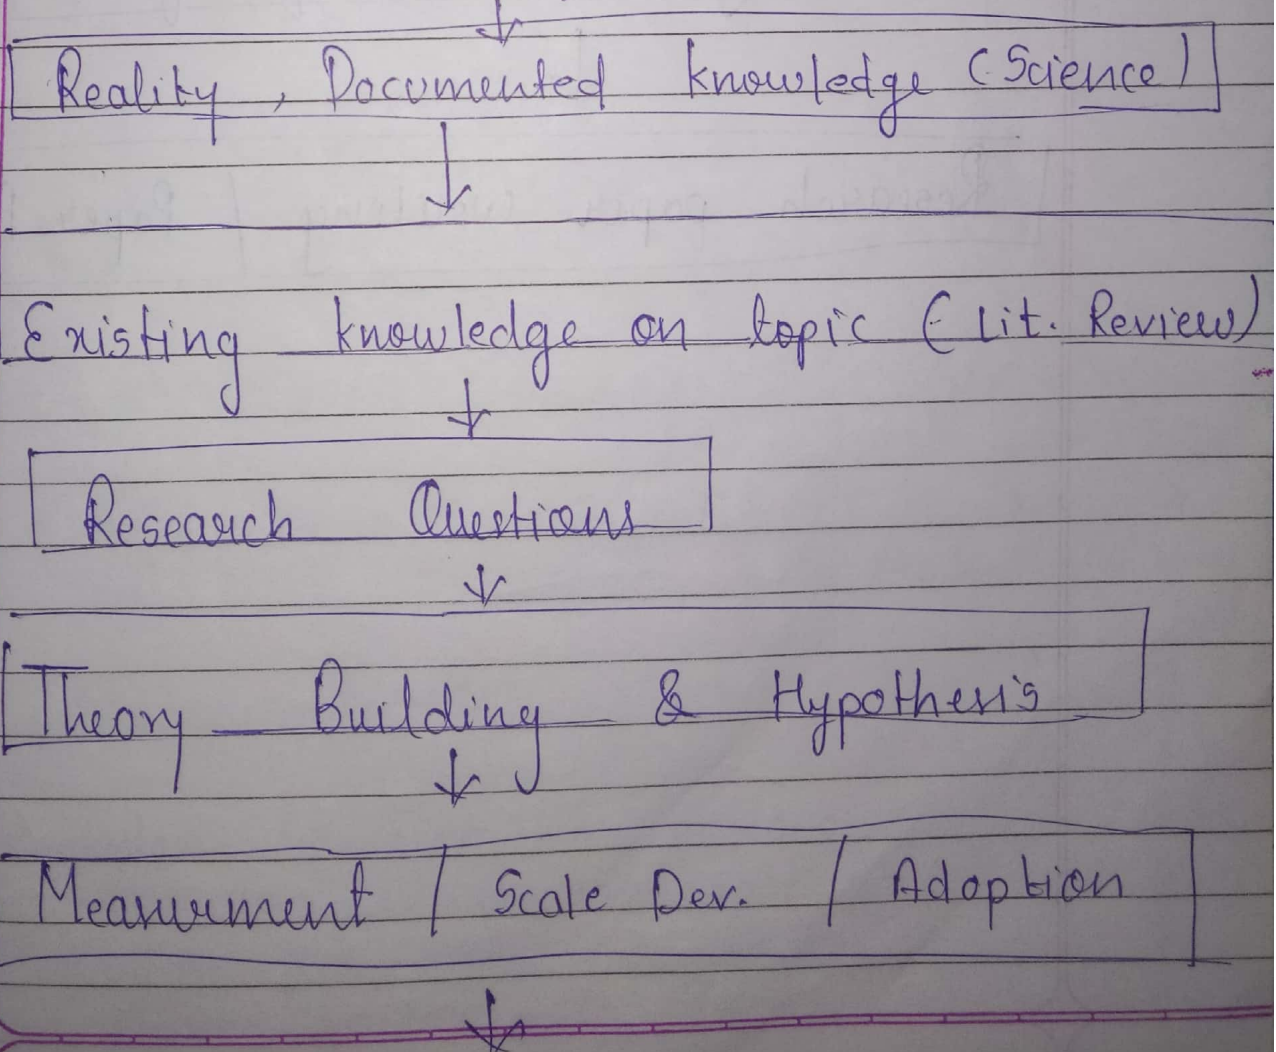 Reality, Documented knowledge (Science)
Existing knowledge on topic (Lit. Review)
Research Questions
Theory Building & Hypothesis
Measurment / Scale Dev. / Adoption